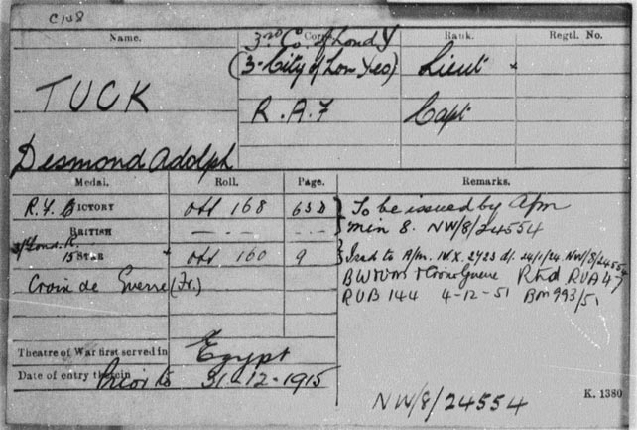 C/48
Name. Corps. Rank. Regtl. No.
3rd Co. of Lond Y
(3-City of Lon Yeo) Lieut
TUCK
R.A.F Capt
Desmond Adolph
Medal. Roll. Page. Remarks.
R.F. VICTORY Off 168 63D To be issued by Afm
BRITISH - - - - min 8. NW/8/24554
3/Lond. R.
15 STAR Off 160 9 Issd to A/m. IV X. 2723 d/. 24/1/24. NW/8/24554
Croix de Guerre (Fr.) BWVM + Croix Guerre Rtnd RUA 47
RUB 144 4-12-51 Bm 993/51
Theatre of War first served in Egypt
Date of entry therein Prior to 31-12-1915
NW/8/24554 K. 1380